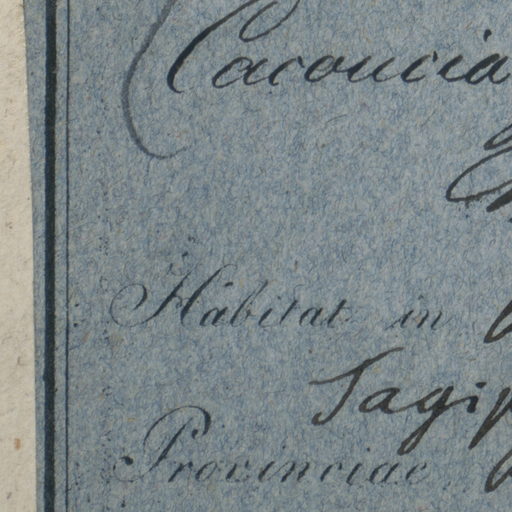 Cacoucia
Habitat in
Tagip
Provinciae